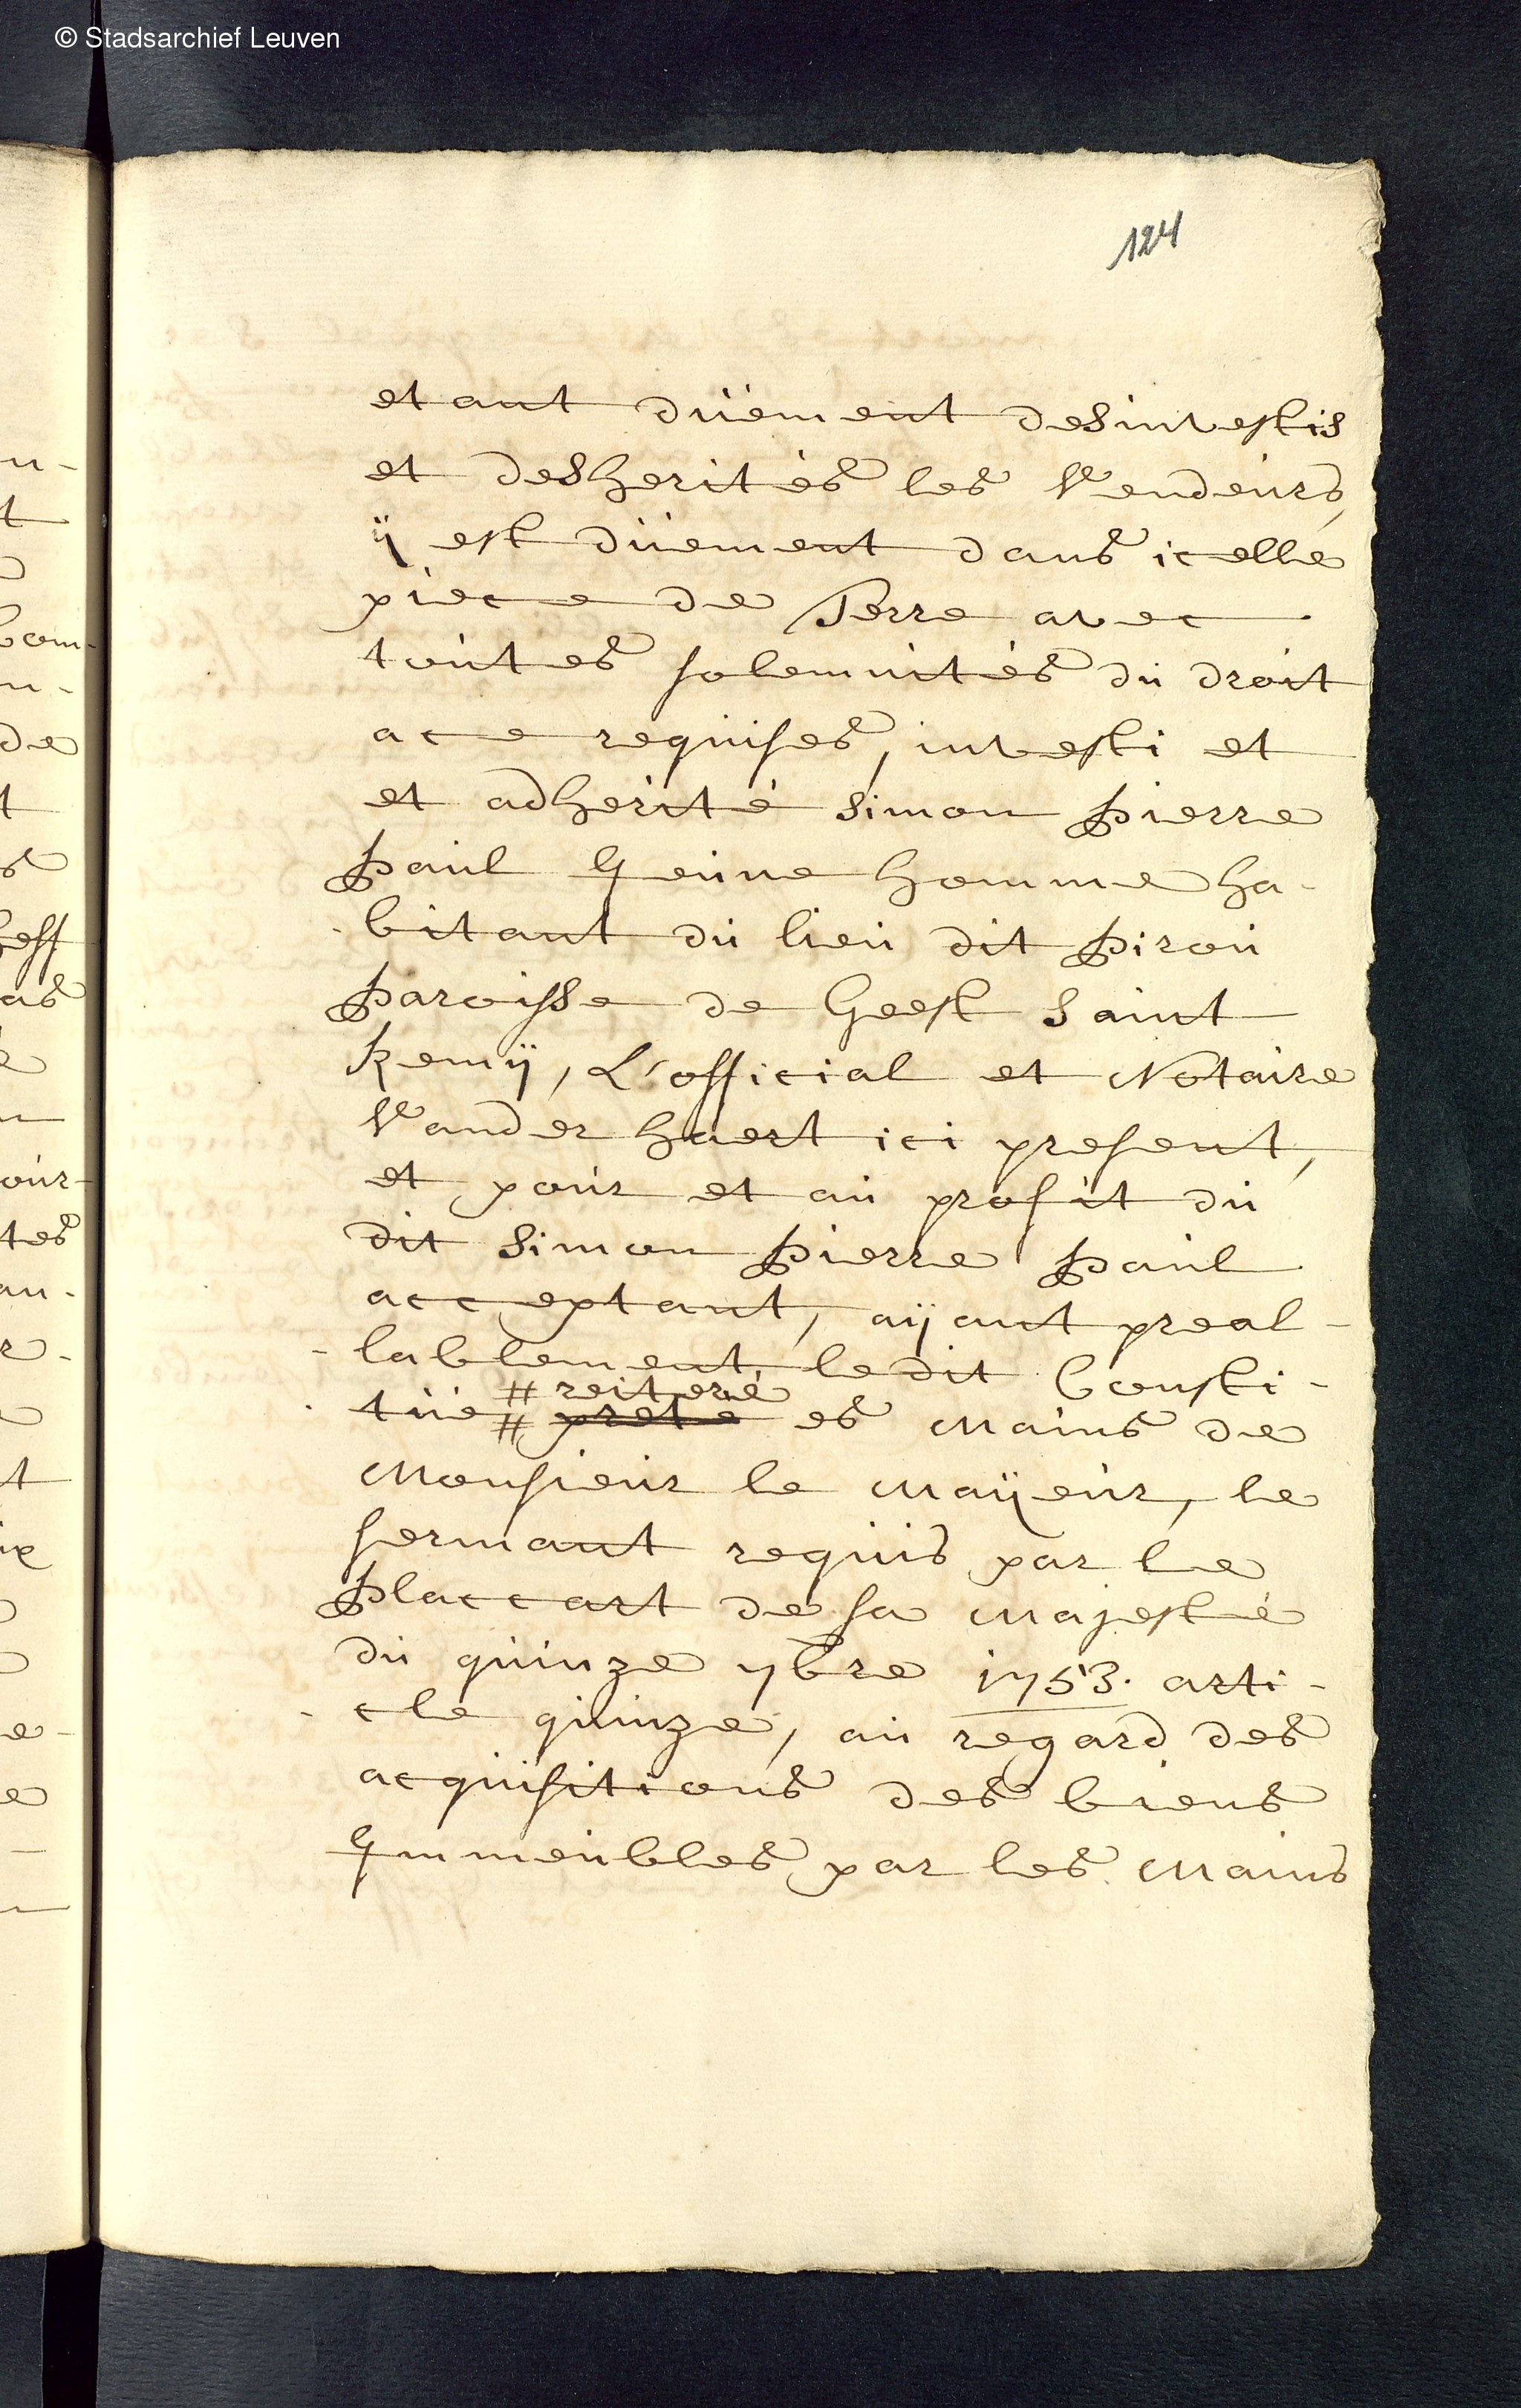 © Stadsarchief Leuven
124
etant düement desinvestis
et desherités les Vendeurs,
ÿ est düement dans icelle
piece de Terre avec
toutes solemnités du droit
ace requises, investi et
et adherité Simon Pierre
Paul Jeune homme ha-
-bitant du lieu dit Pirou
Paroisse de Geest Saint
Remÿ, L'official et Notaire
Vander haert ici present,
et pour et au profit du
dit Simon Pierre Paul
acceptant, aÿant preal-
-lablement ledit Consti-
# reiteré
-tüe # prete es mains de
Monsieur le maÿeur, le
sermant requis par le
Placcart de sa majesté
du quinze 7bre 1753. arti-
-cle quinze, au regard des
acquisitions des biens
Immeubles par les mains